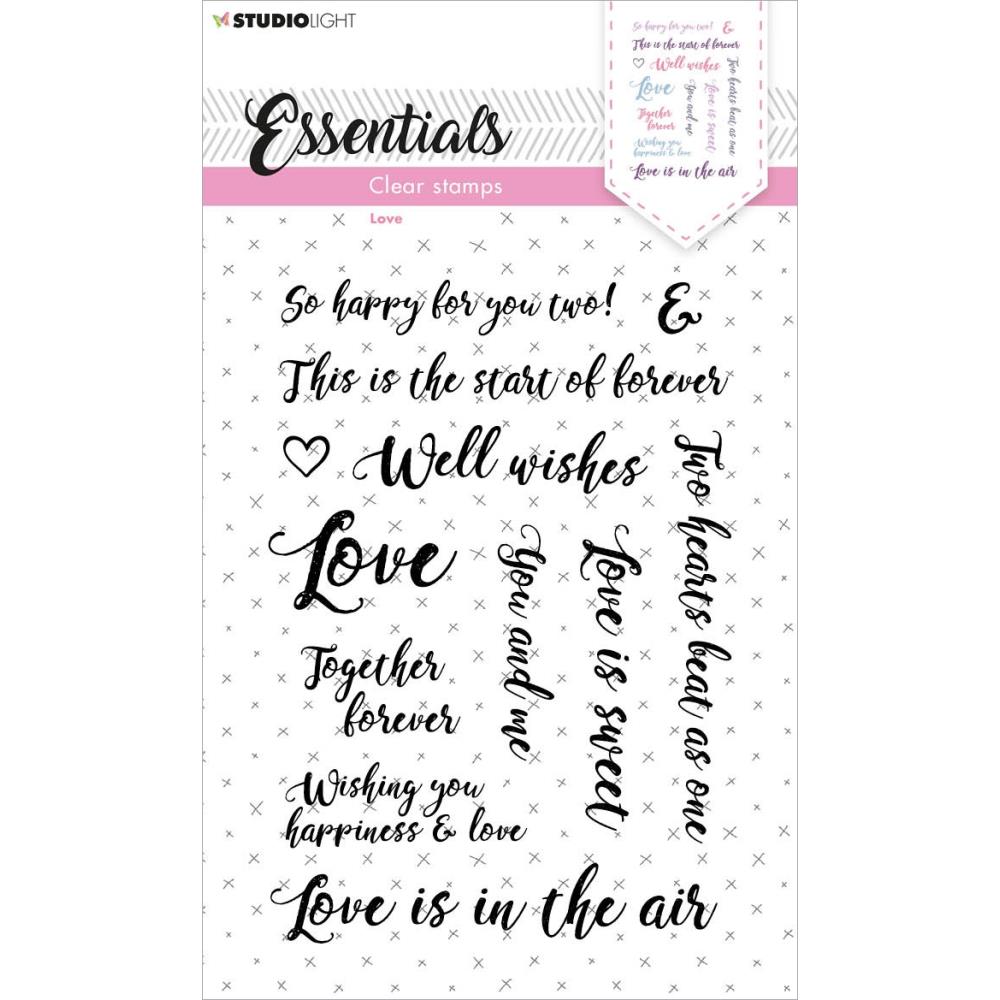 STUDIOLIGHT
So happy for you two! &
This is the start of forever
Well wishes
Love
You and me
Love is sweet
Two hearts beat as one
Together
forever
Wishing you
happiness & love
Love is in the air
Essentials
Clear stamps
Love
So happy for you two! &
This is the start of forever
Well wishes
Love
You and me
Love is sweet
Two hearts beat as one
Together
forever
Wishing you
happiness & love
Love is in the air